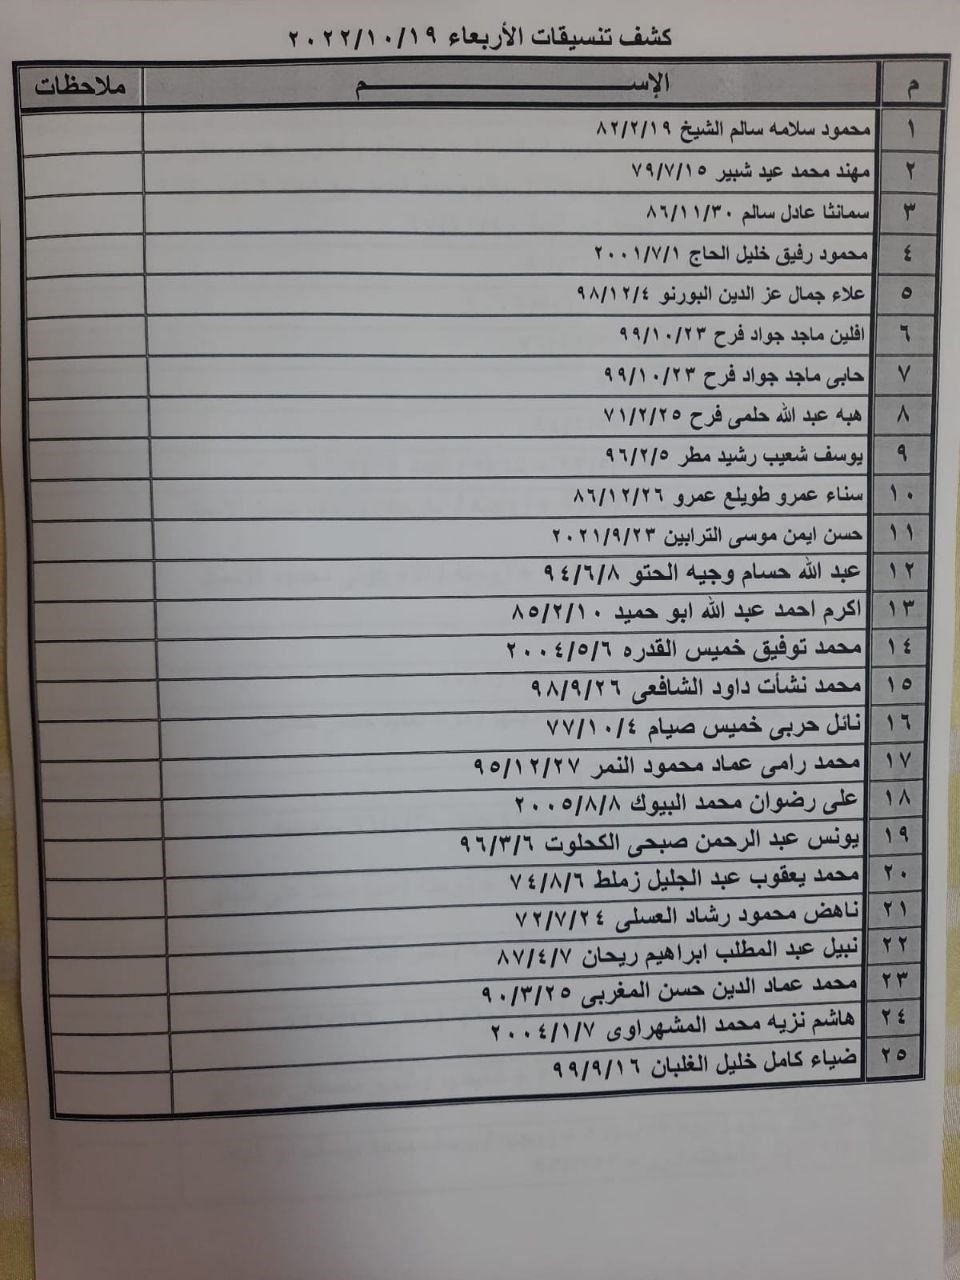 كشف تنسيقات الأربعاء ٢٠٢٢/١٠/١٩
م الإســـــم ملاحظات
١ محمود سلامه سالم الشيخ ٨٢/٢/١٩
٢ مهند محمد عيد شبير ٧٩/٧/١٥
٣ سمانثا عادل سالم ٨٦/١١/٣٠
٤ محمود رفيق خليل الحاج ٢٠٠١/٧/١
٥ علاء جمال عز الدين البورنو ٩٨/١٢/٤
٦ افلين ماجد جواد فرح ٩٩/١٠/٢٣
٧ حابى ماجد جواد فرح ٩٩/١٠/٢٣
٨ هبه عبد الله حلمى فرح ٧١/٢/٢٥
٩ يوسف شعيب رشيد مطر ٩٦/٢/٥
١٠ سناء عمرو طويلع عمرو ٨٦/١٢/٢٦
١١ حسن ايمن موسى الترابين ٢٠٢١/٩/٢٣
١٢ عبد الله حسام وجيه الحتو ٩٤/٦/٨
١٣ اكرم احمد عبد الله ابو حميد ٨٥/٢/١٠
١٤ محمد توفيق خميس القدره ٢٠٠٤/٥/٦
١٥ محمد نشأت داود الشافعى ٩٨/٩/٢٦
١٦ نائل حربى خميس صيام ٧٧/١٠/٤
١٧ محمد رامى عماد محمود النمر ٩٥/١٢/٢٧
١٨ على رضوان محمد البيوك ٢٠٠٥/٨/٨
١٩ يونس عبد الرحمن صبحى الكحلوت ٩٦/٣/٦
٢٠ محمد يعقوب عبد الجليل زملط ٧٤/٨/٦
٢١ ناهض محمود رشاد العسلى ٧٢/٧/٢٤
٢٢ نبيل عبد المطلب ابراهيم ريحان ٨٧/٤/٧
٢٣ محمد عماد الدين حسن المغربى ٩٠/٣/٢٥
٢٤ هاشم نزيه محمد المشهراوى ٢٠٠٤/١/٧
٢٥ ضياء كامل خليل الغلبان ٩٩/٩/١٦